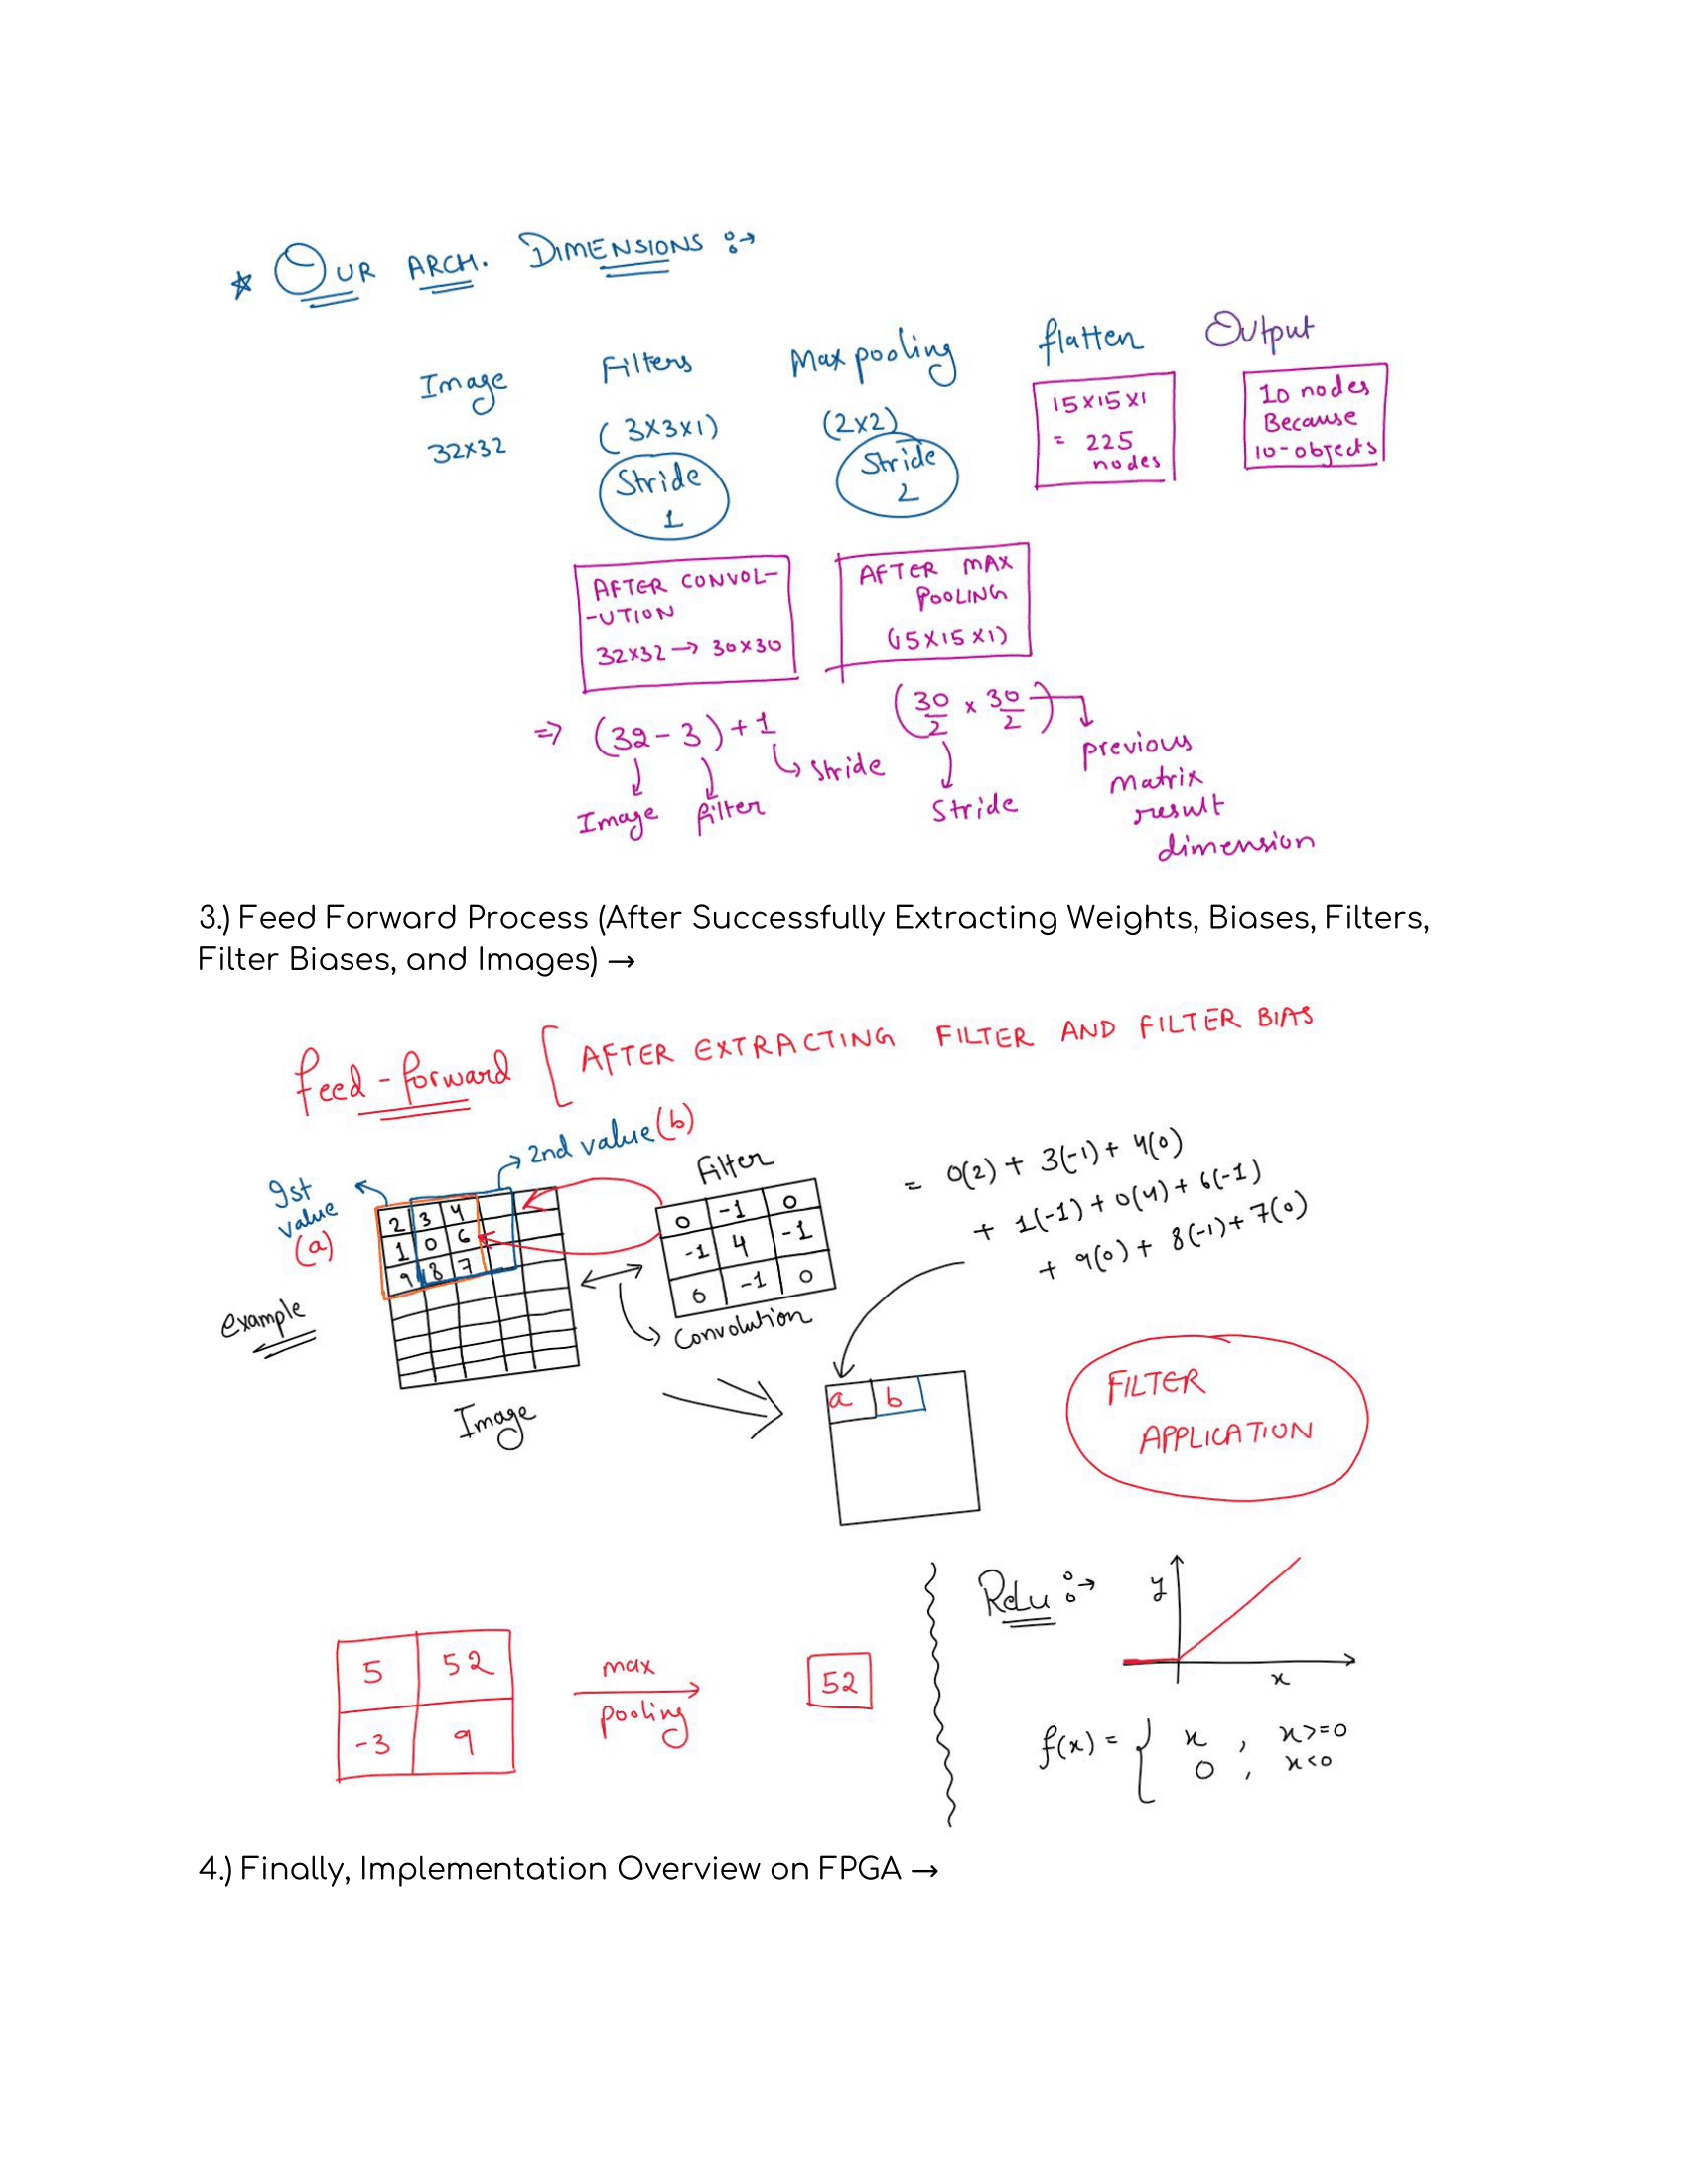 ☆ OUR ARCH. DIMENSIONS :→
Image Filters Max pooling flatten Output
32x32 (3x3x1) (2x2)
Stride
1
Stride
2
15x15x1
= 225
nodes
10 nodes
Because
10-objects
AFTER CONVOL-
-UTION
32x32 → 30x30
AFTER MAX
POOLING
(15x15x1)
⇒ (32-3)+1
Image filter stride
(30/2 x 30/2)
Stride
previous
matrix
result
dimension
3.) Feed Forward Process (After Successfully Extracting Weights, Biases, Filters,
Filter Biases, and Images) →
feed-forward [ AFTER EXTRACTING FILTER AND FILTER BIAS
→ 2nd value (b)
1st
value
(a)
example
2 3 4
1 0 6
9 8 7
Image
Filter
0 -1 0
-1 4 -1
0 -1 0
Convolution
= 0(2) + 3(-1) + 4(0)
+ 1(-1) + 0(4) + 6(-1)
+ 9(0) + 8(-1) + 7(0)
a b
FILTER
APPLICATION
5 52
-3 9
max
pooling
52
ReLu :→
y
x
f(x) = { x , x>=0
0 , x<0
4.) Finally, Implementation Overview on FPGA →